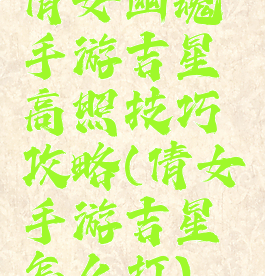 倩女幽魂
手游吉星
高照技巧
攻略(倩女
手游吉星
怎么打)